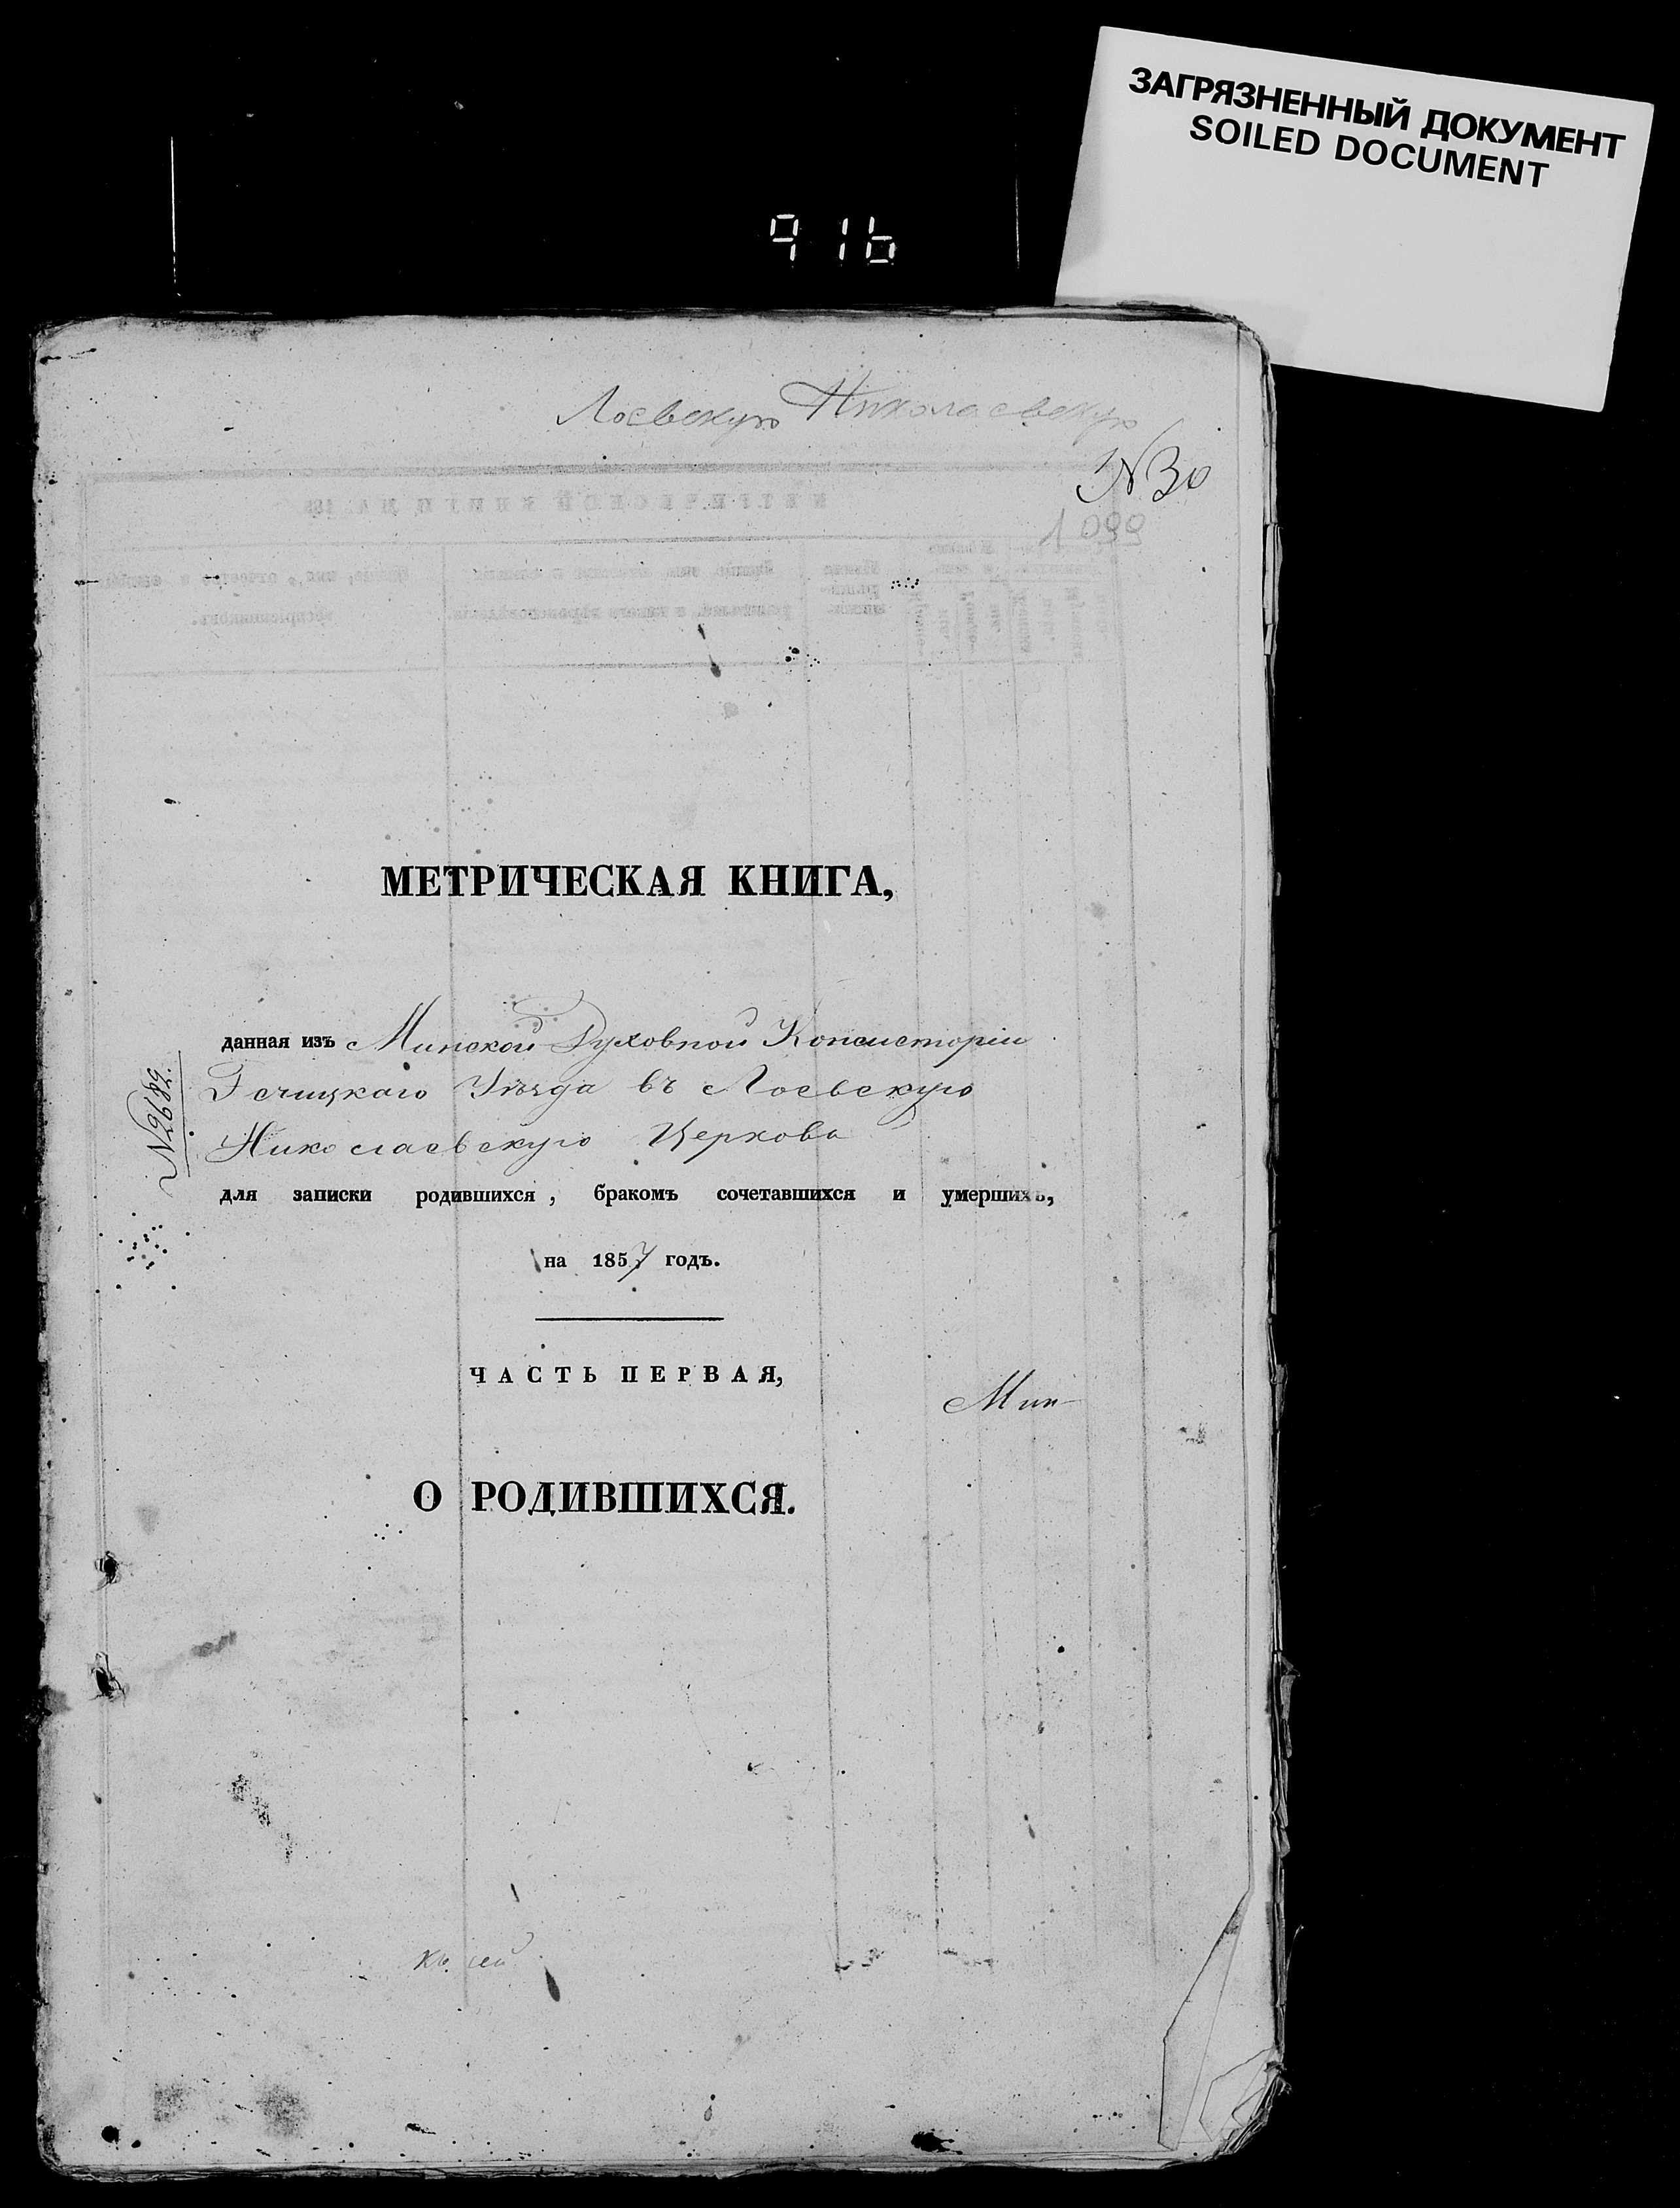 ЗАГРЯЗНЕННЫЙ ДОКУМЕНТ
SOILED DOCUMENT
916
Лоевскую Николаевскую
№30
1099
МЕТРИЧЕСКАЯ КНИГА,
данная изъ Минской Духовной Консисторіи
Речицкаго Уѣзда въ Лоевскую
Николаевскую Церковь
№2682.
для записки родившихся, бракомъ сочетавшихся и умершихъ,
на 1857 годъ.
ЧАСТЬ ПЕРВАЯ,
Мин
О РОДИВШИХСЯ.
къ сей